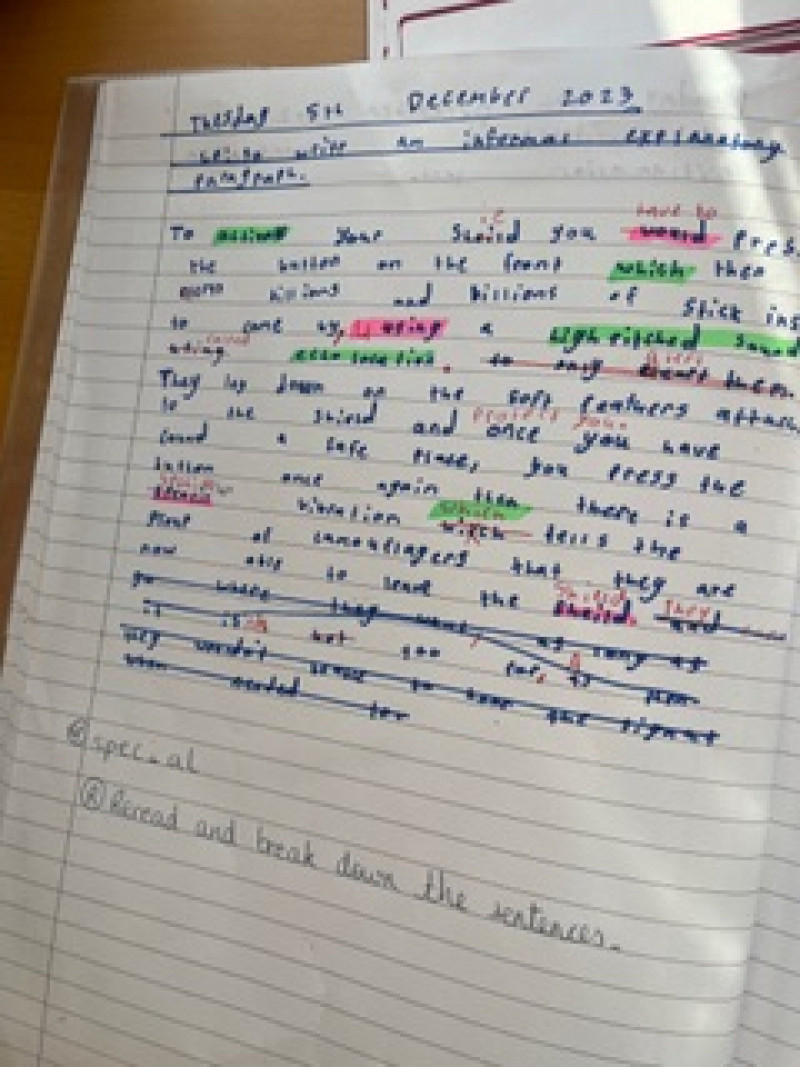 Tuesday 5th December 2023
write an informal explanatory
paragraph.
ie have to
To your you would press
the button on the front which then
billions and billions of stick ins
to come by, using a high pitched sound
using called echo location. to only them.
They lay down on the soft feathers attach
protect your
to the shield and once you have
found a safe place, you press the
button once again then there is a
vibration which tells the
of camouflagers that they are
now able to leave the sheild. and
shield they
go where they want, as long as
it is not too far,
they wouldn't to hear the signal
when needed for
spec_al
Reread and break down the sentences.